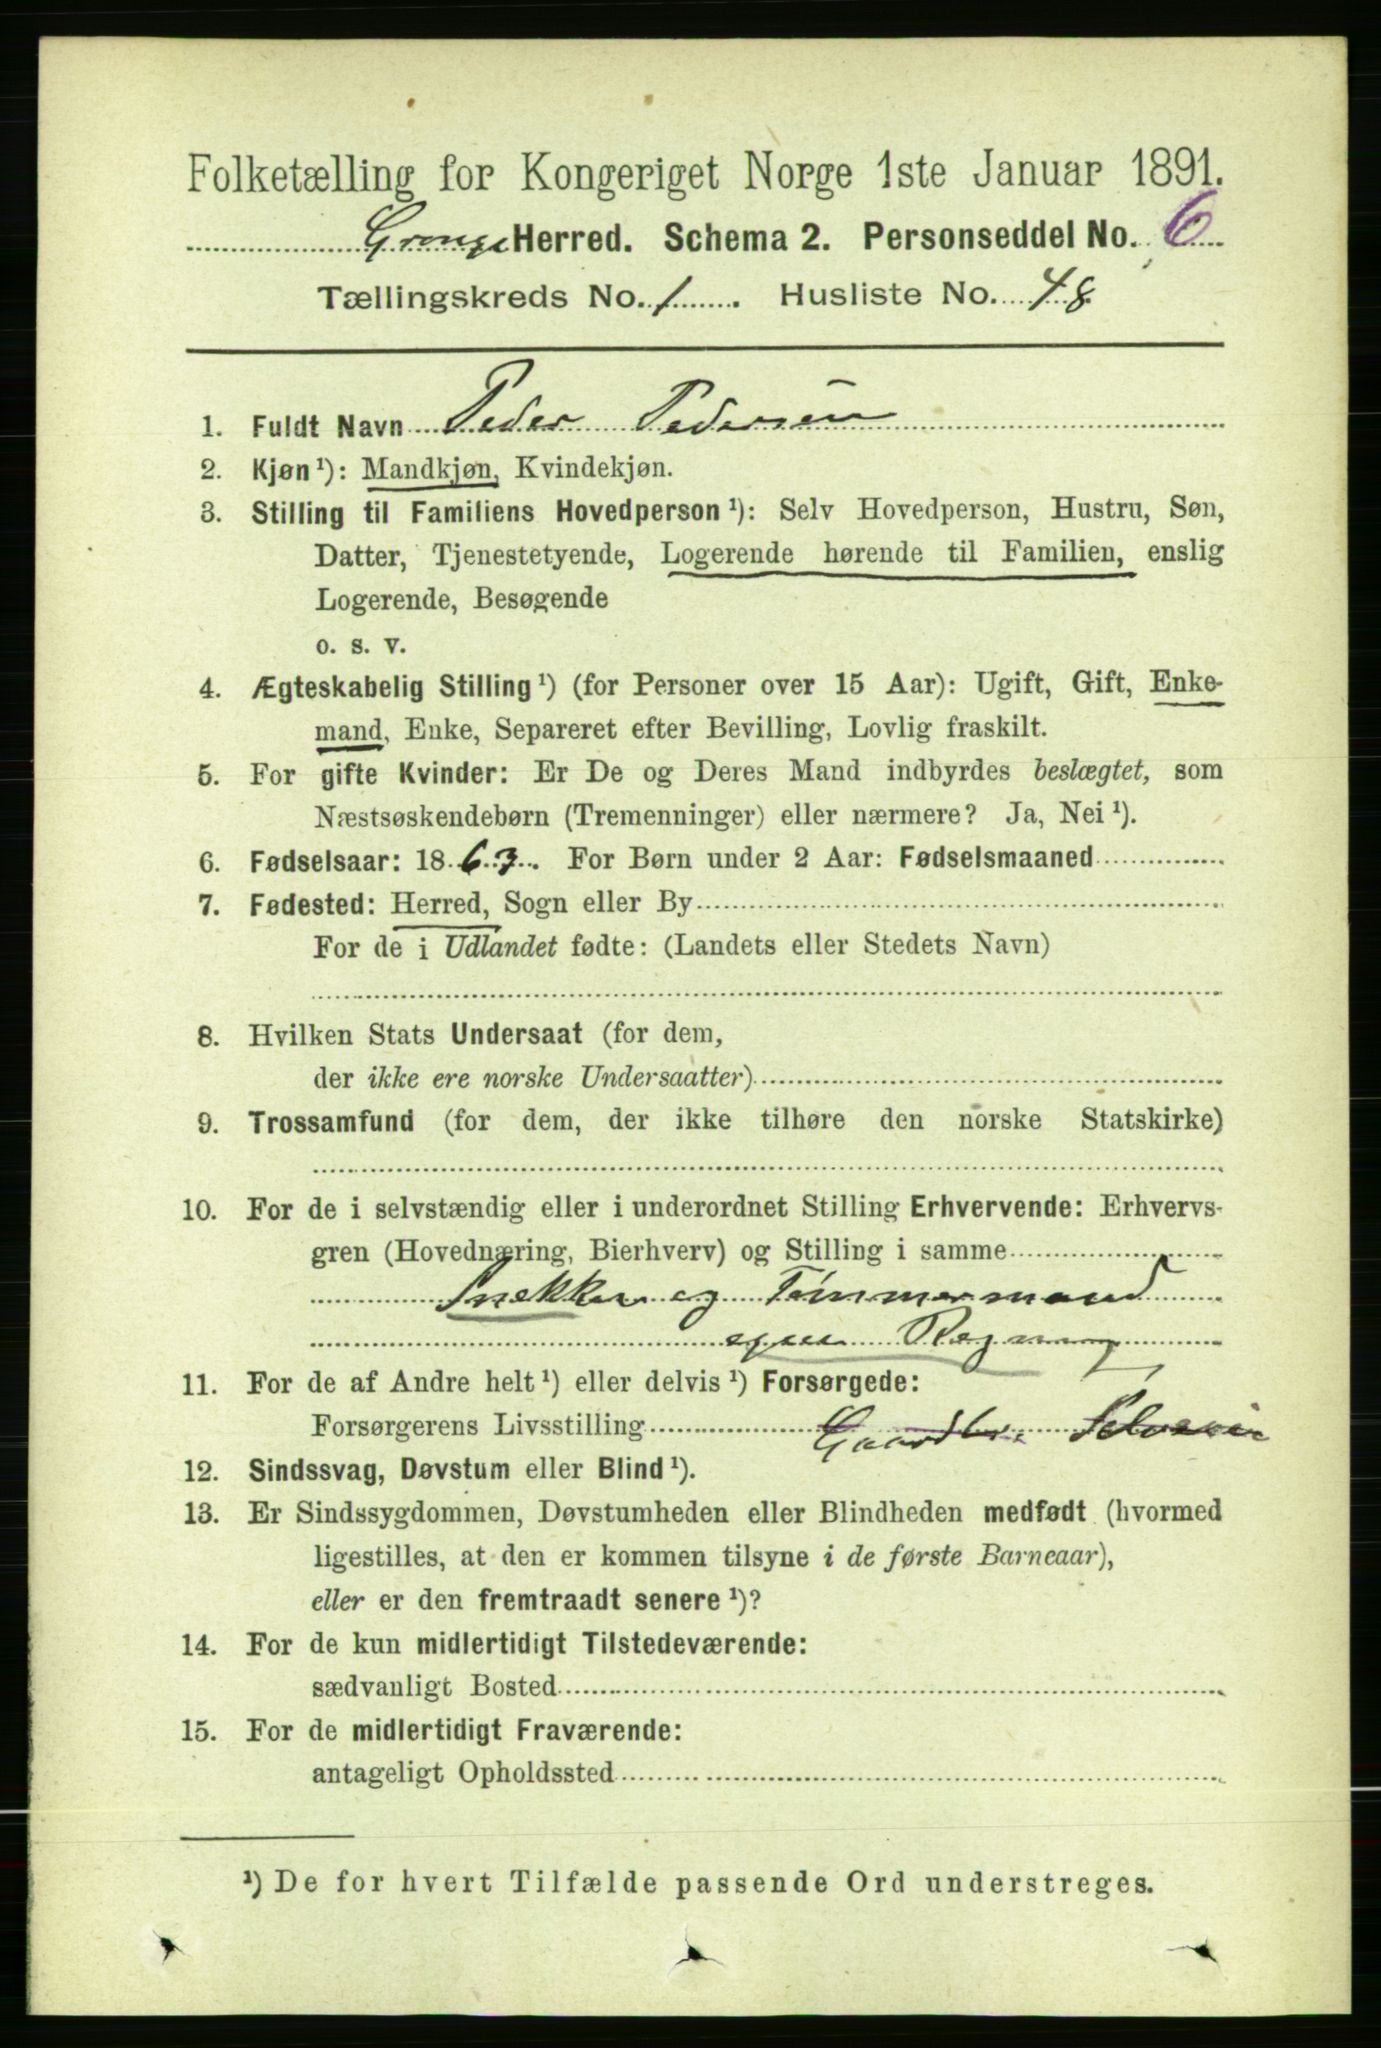 Folketælling for Kongeriget Norge 1ste Januar 1891.
Herred. Schema 2. Personseddel No. 6
Tællingskreds No. 1. Husliste No. 48
1. Fuldt Navn Peder Pedersen
2. Kjøn ¹): Mandkjøn, Kvindekjøn.
3. Stilling til Familiens Hovedperson ¹): Selv Hovedperson, Hustru, Søn,
Datter, Tjenestetyende, Logerende hørende til Familien, enslig
Logerende, Besøgende
o. s. v.
4. Ægteskabelig Stilling ¹) (for Personer over 15 Aar): Ugift, Gift, Enke-
mand, Enke, Separeret efter Bevilling, Lovlig fraskilt.
5. For gifte Kvinder: Er De og Deres Mand indbyrdes beslægtet, som
Næstsøskendebørn (Tremenninger) eller nærmere? Ja, Nei ¹).
6. Fødselsaar: 1863. For Børn under 2 Aar: Fødselsmaaned
7. Fødested: Herred, Sogn eller By
For de i Udlandet fødte: (Landets eller Stedets Navn)
8. Hvilken Stats Undersaat (for dem,
der ikke ere norske Undersaatter)
9. Trossamfund (for dem, der ikke tilhøre den norske Statskirke)
10. For de i selvstændig eller i underordnet Stilling Erhvervende: Erhvervs-
gren (Hovednæring, Bierhverv) og Stilling i samme
Snekker og Tømmermand
egen Regning
11. For de af Andre helt ¹) eller delvis ¹) Forsørgede:
Forsørgerens Livsstilling Gaardbr. Selveier
12. Sindssvag, Døvstum eller Blind ¹).
13. Er Sindssygdommen, Døvstumheden eller Blindheden medfødt (hvormed
ligestilles, at den er kommen tilsyne i de første Barneaar),
eller er den fremtraadt senere ¹)?
14. For de kun midlertidigt Tilstedeværende:
sædvanligt Bosted
15. For de midlertidigt Fraværende:
antageligt Opholdssted
¹) De for hvert Tilfælde passende Ord understreges.